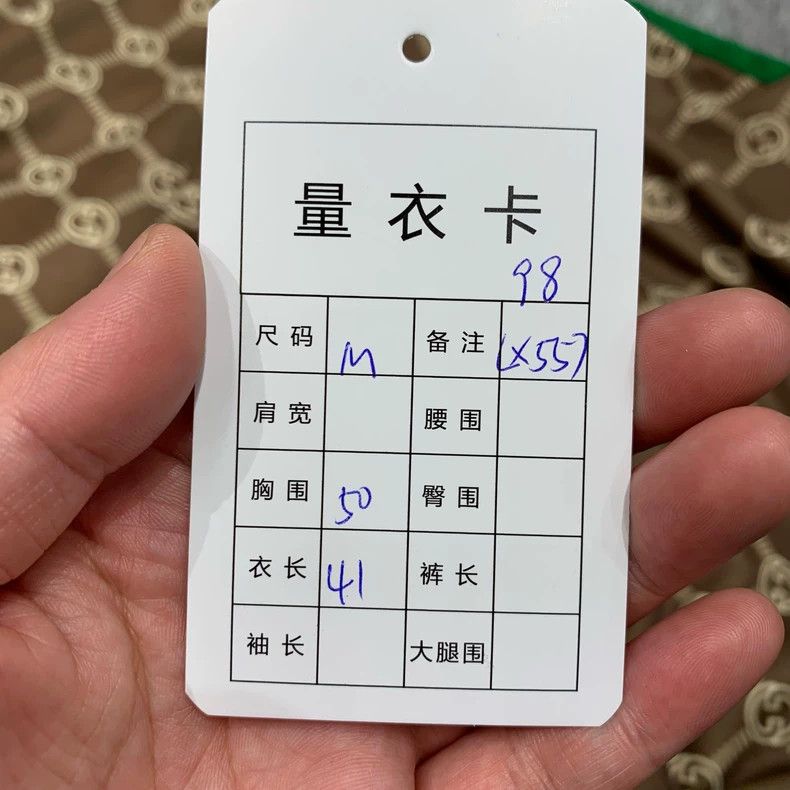 量衣卡
98
尺码 M 备注 (X55)
肩宽 腰围
胸围 50 臀围
衣长 41 裤长
袖长 大腿围